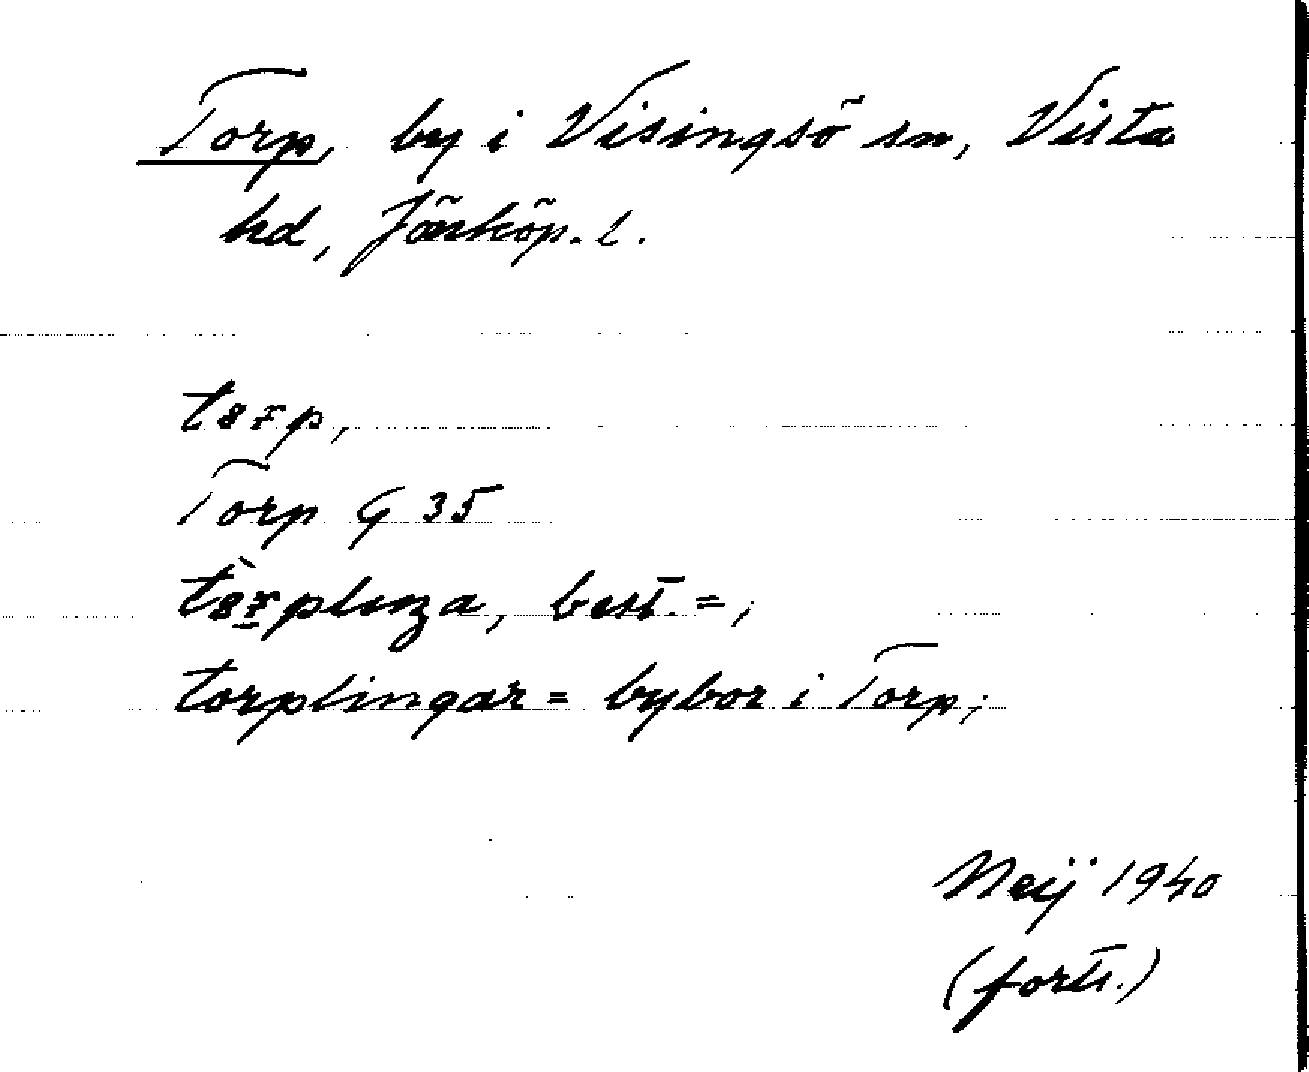 Torp, by i Visingsö sn, Vista
hd, Jönköp. l.
Torp G 35
best. = ;
torplingar = bybor i Torp;
Neij 1940
(forts.)